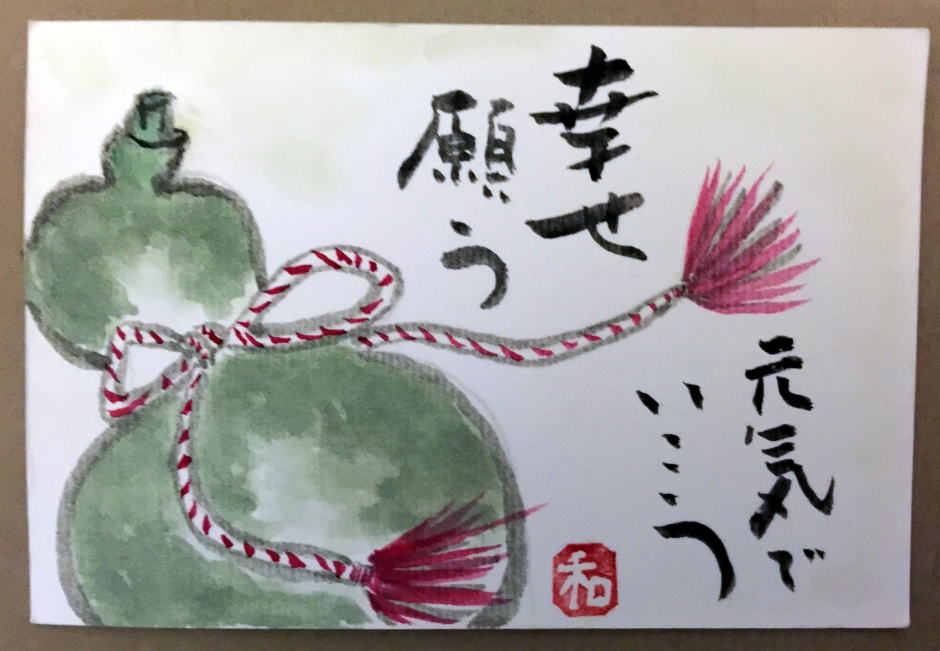 幸せ
願う
元気で
いこう
和